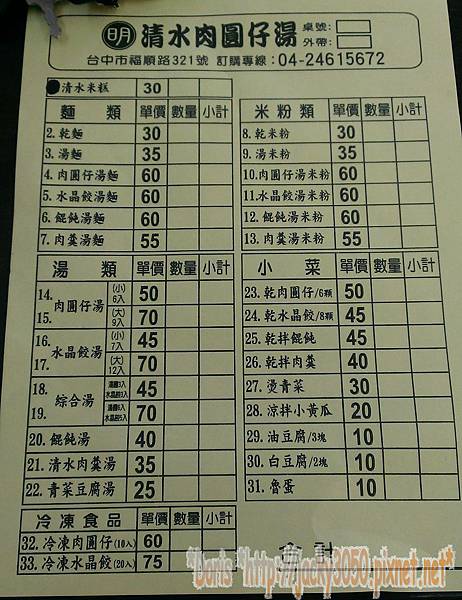 明 清水肉圓仔湯 桌號:
外帶:
台中市福順路321號 訂購專線:04-24615672
清水米糕 30
麵類 單價 數量 小計
2. 乾麵 30
3. 湯麵 35
4. 肉圓仔湯麵 60
5. 水晶餃湯麵 60
6. 餛飩湯麵 60
7. 肉羹湯麵 55
米粉類 單價 數量 小計
8. 乾米粉 30
9. 湯米粉 35
10. 肉圓仔湯米粉 60
11. 水晶餃湯米粉 60
12. 餛飩湯米粉 60
13. 肉羹湯米粉 55
湯類 單價 數量 小計
14. 肉圓仔湯 (小)6入 50
15. (大)9入 70
16. 水晶餃湯 (小)7入 45
17. (大)12入 70
18. 綜合湯 45
19. 70
20. 餛飩湯 40
21. 清水肉羹湯 35
22. 青菜豆腐湯 25
小菜 單價 數量 小計
23. 乾肉圓仔/6顆 50
24. 乾水晶餃/8顆 45
25. 乾拌餛飩 45
26. 乾拌肉羹 40
27. 燙青菜 30
28. 涼拌小黃瓜 20
29. 油豆腐/3塊 10
30. 白豆腐/2塊 10
31. 魯蛋 10
冷凍食品 單價 數量 小計
32. 冷凍肉圓仔(10入) 60
33. 冷凍水晶餃(20入) 75
合計
"Doris "http://jacky3050.pixnet.net"